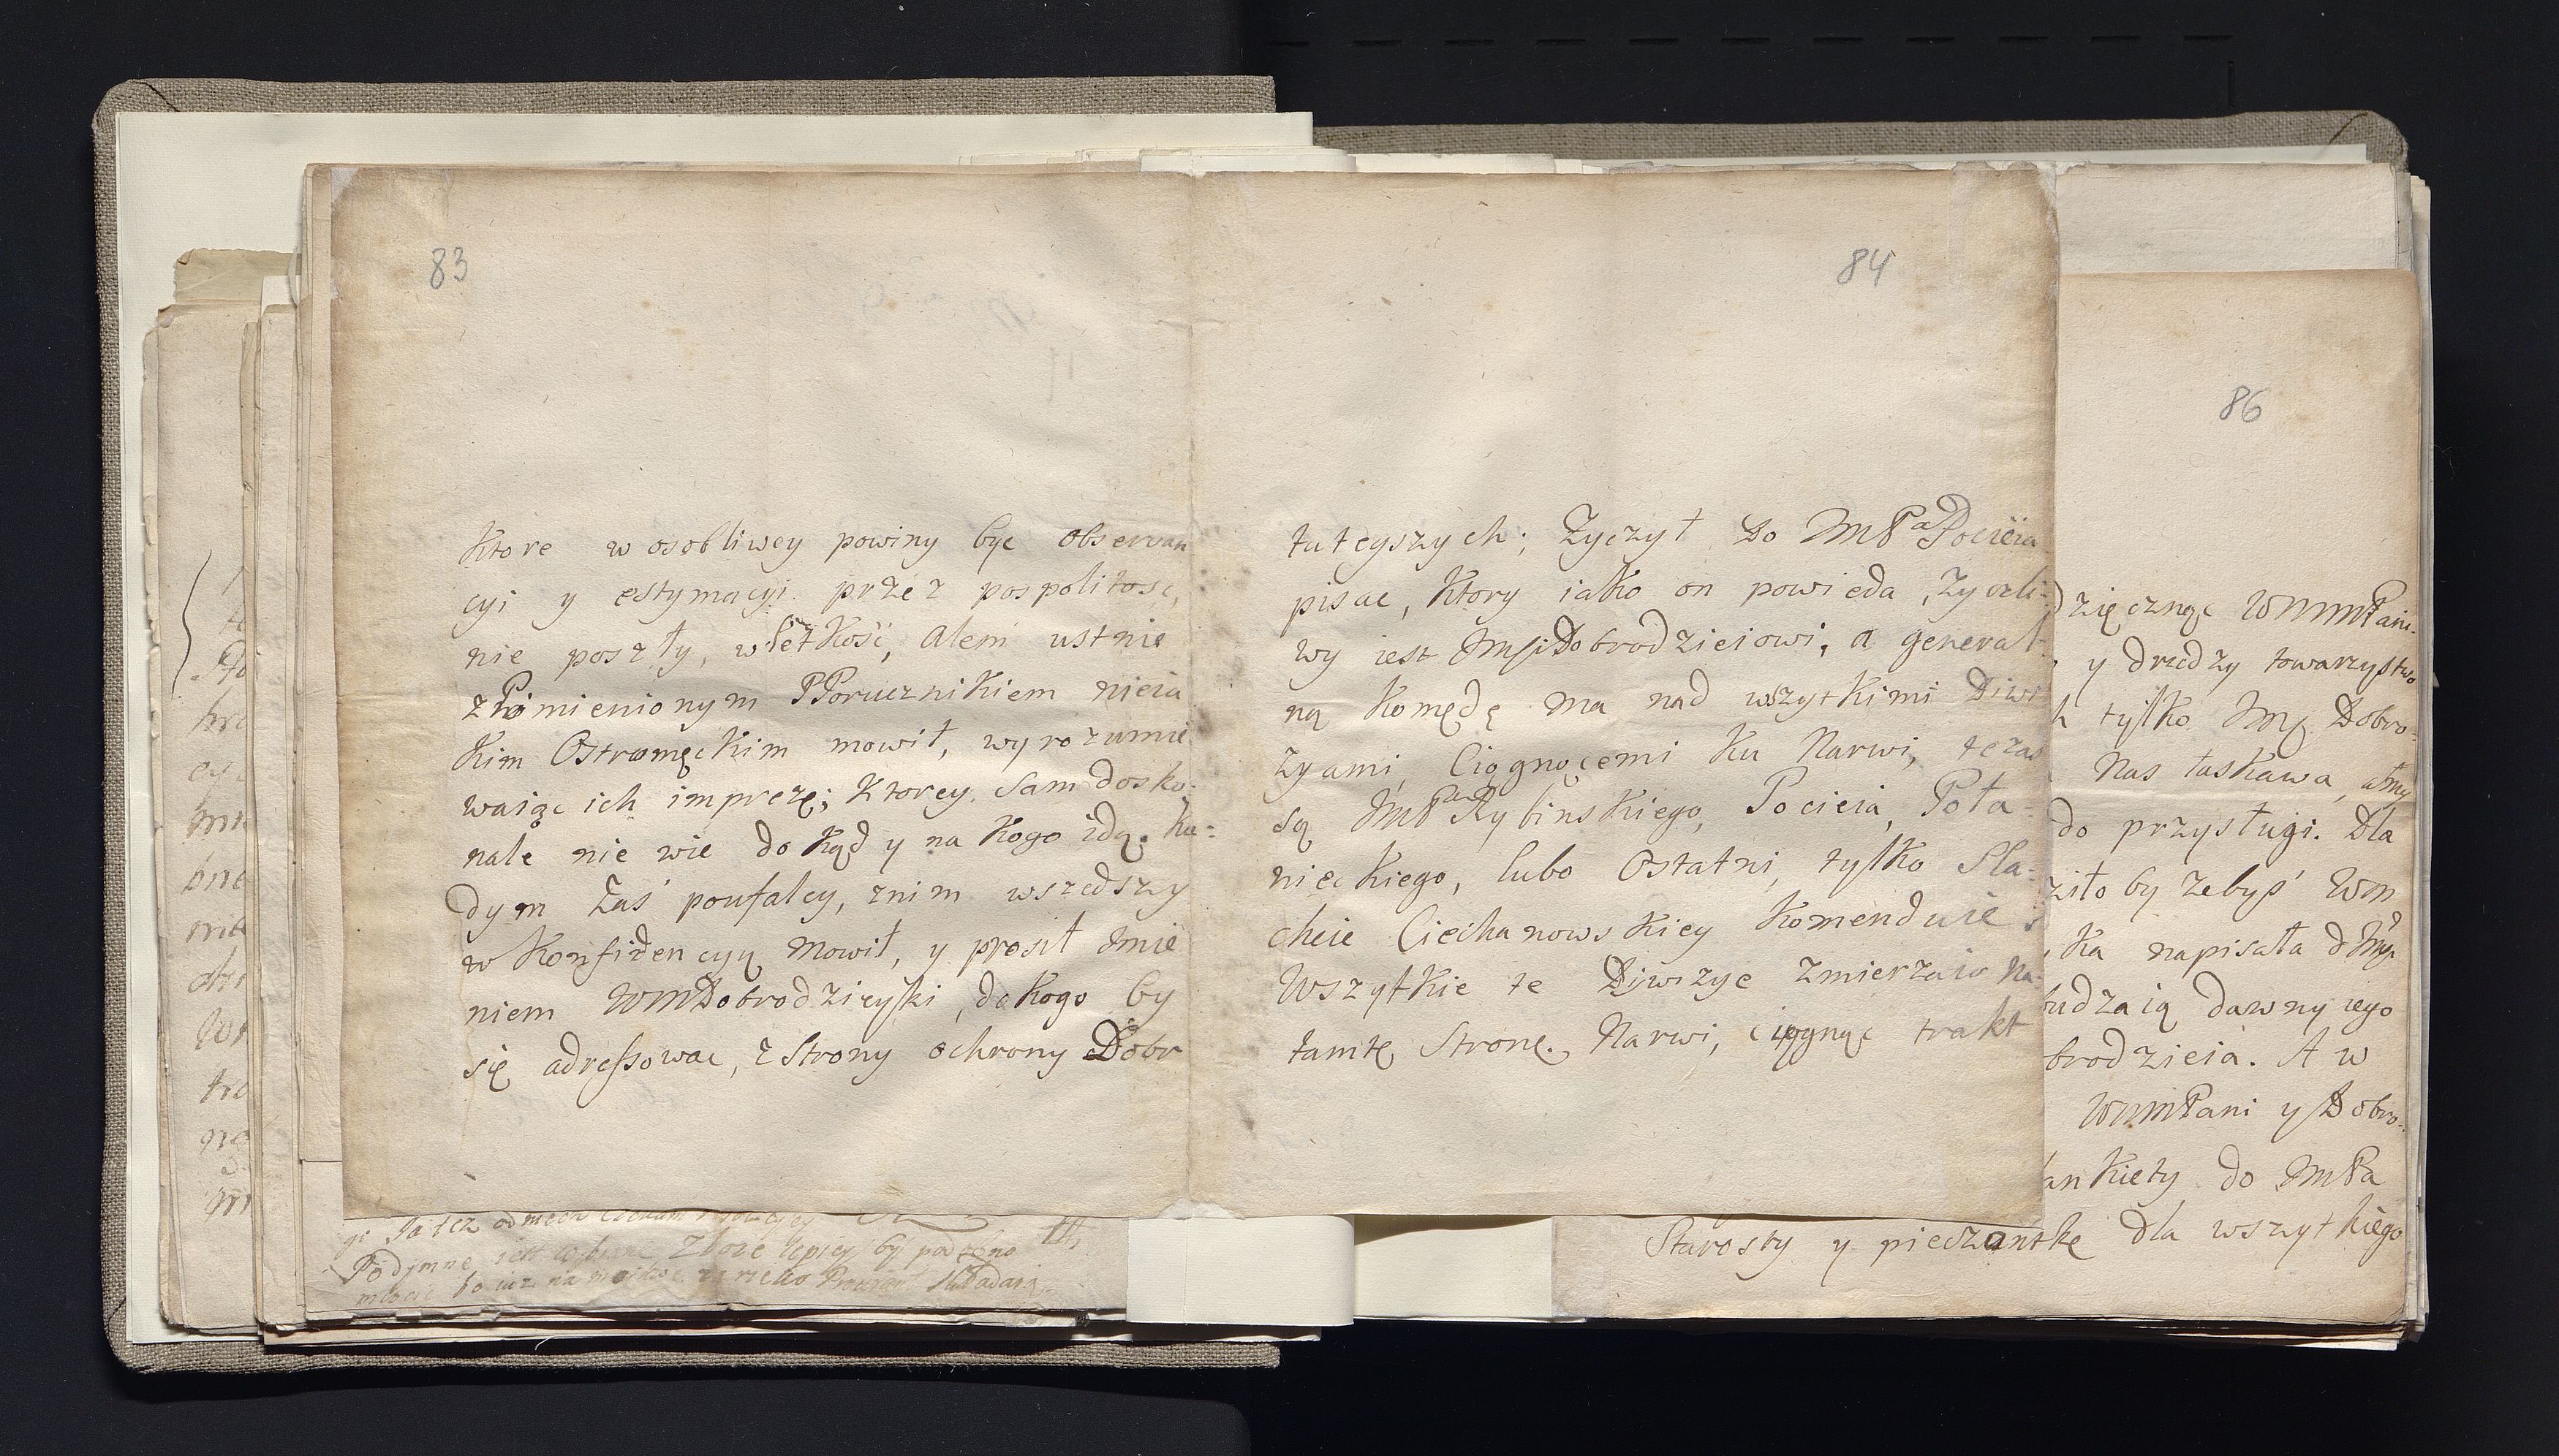 83
Ktore w osobliwey powiny byc observan
cyi y estymacyi przez pospolitosc,
nie poszły, w letkość, alem ustnie
z Pomienionym PPorucznikiem nieia
Kim Ostromęckim mowił, wyrozumie
waiąc ich imprezę; Ktorey Sam dosko:
nale nie wie do kąd y na Kogo idą. Ka:
dym Zaś poufaley, znim wszedszy
w Konfidencyą mowił, y prosił Imie
niem WMDobrodzieyski, do kogo by
się adressowac, z Strony ochrony Dobr
84
tuteyszych; Zyczył Do JmPa Pocieia
pisac, Ktory iako on powieda, Zyczli:
wy iest JmsiDobrodzieiowi, a general:
ną Komędę ma nad wszytkimi Diwi
zyami, Ciągnącemi Ku Narwi, teraz
są JmPanow Rybinskiego, Pocieia, Poła:
nieckiego, lubo Ostatni, tylko Sla:
chcie Ciechanowskiey Komenduie
Wszytkie te Diwizye Zmierzaią Na
tamtę Stronę Narwi, ciągnąc trakt
86
Dzięcznąc WMMPani:
y drudzy towarzystwo
tylko Jmsi Dobro:
Nas łaskawa, abmy
do przysługi. Dla
ziło by żebyś WM
ka napisała d Jmsi
budzaią dawny iego
brodzieia. A w
WMMPani y Dobro:
ankiety do JmPa
Starosty y pieczantkę dla wszytkiego